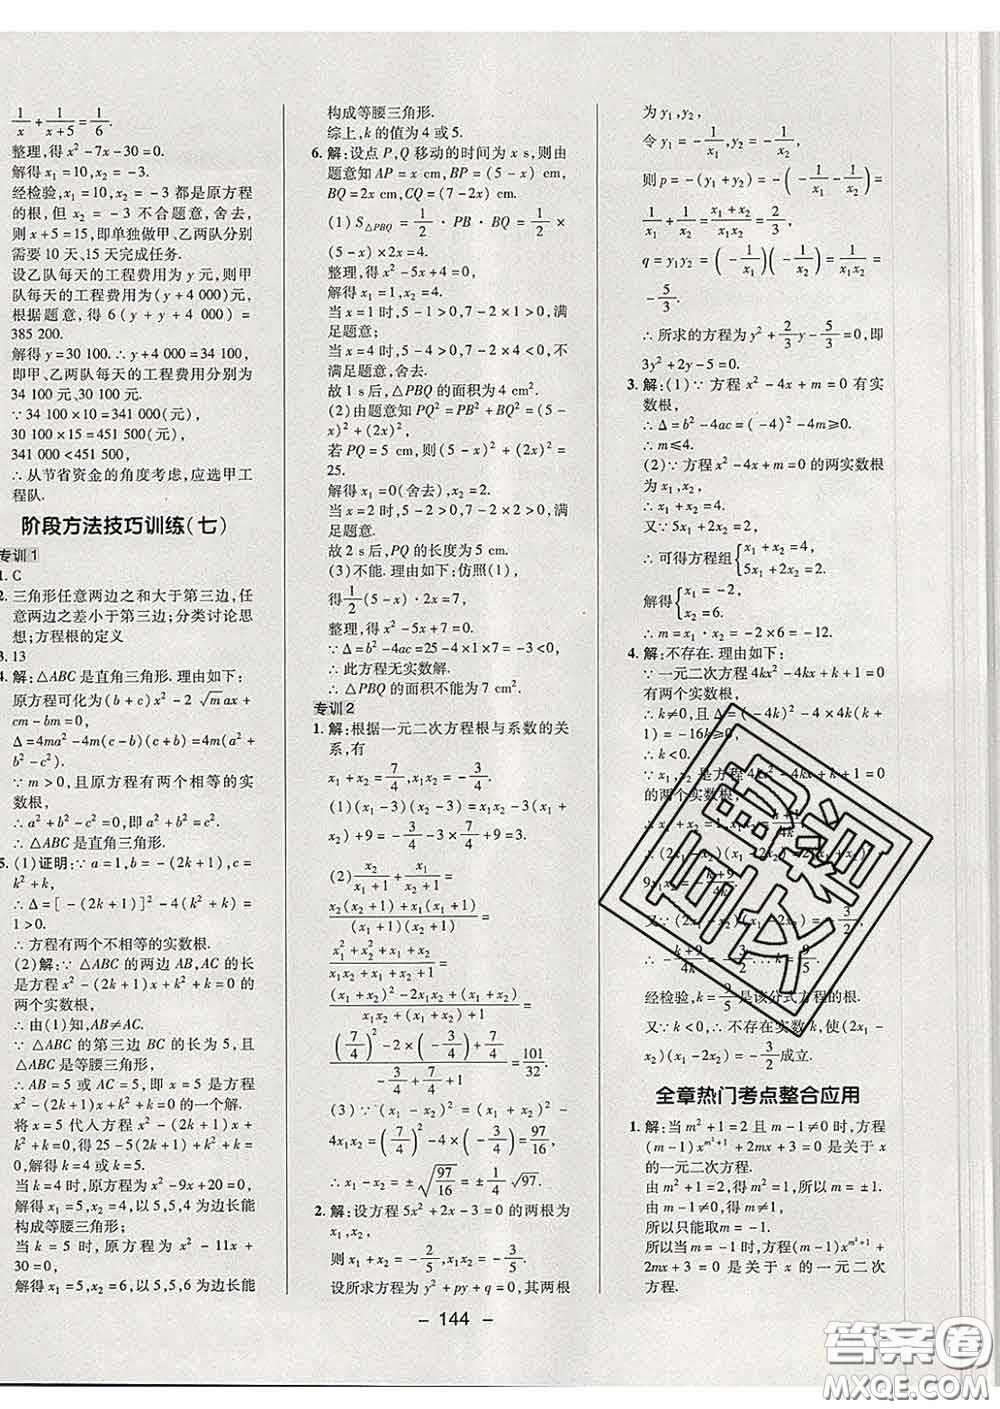 1/x + 1/(x+5) = 1/6.
整理,得 x²-7x-30=0.
解得 x₁=10,x₂=-3.
经检验,x₁=10,x₂=-3 都是原方程
的根,但 x₂=-3 不合题意,舍去,
则 x+5=15,即单独做甲、乙两队分别
需要 10 天、15 天完成任务.
设乙队每天的工程费用为 y 元,则甲
队每天的工程费用为(y+4 000)元,
根据题意,得 6(y+y+4 000)=
385 200.
解得 y=30 100.∴y+4 000=34 100,
即甲、乙两队每天的工程费用分别为
34 100 元、30 100 元.
∵34 100×10=341 000(元),
30 100×15=451 500(元),
341 000<451 500,
∴从节省资金的角度考虑,应选甲工
程队.
阶段方法技巧训练(七)
专训1
1. C
2. 三角形任意两边之和大于第三边,任
意两边之差小于第三边;分类讨论思
想;方程根的定义
3. 13
4. 解:△ABC 是直角三角形.理由如下:
原方程可化为(b+c)x²-2√m ax+
cm-bm=0,
Δ=4ma²-4m(c-b)(c+b)=4m(a²+
b²-c²).
∵m>0,且原方程有两个相等的实
数根,
∴a²+b²-c²=0,即 a²+b²=c².
∴△ABC 是直角三角形.
5. (1)证明:∵a=1,b=-(2k+1),c=
k²+k,
∴Δ=[-(2k+1)]²-4(k²+k)=
1>0.
∴方程有两个不相等的实数根.
(2)解:∵△ABC 的两边 AB,AC 的长
是方程 x²-(2k+1)x+k²+k=0 的
两个实数根,
∴由(1)知,AB≠AC.
∵△ABC 的第三边 BC 的长为 5,且
△ABC 是等腰三角形,
∴AB=5 或 AC=5,即 x=5 是方程
x²-(2k+1)x+k²+k=0 的一个解.
将 x=5 代入方程 x²-(2k+1)x+
k²+k=0,得 25-5(2k+1)+k²+k=
0,解得 k=4 或 k=5.
当 k=4 时,原方程为 x²-9x+20=0,
解得 x₁=5,x₂=4,以 5,5,4 为边长能
构成等腰三角形;
当 k=5 时,原方程为 x²-11x+
30=0,
解得 x₁=5,x₂=6,以 5,5,6 为边长能
构成等腰三角形.
综上,k 的值为 4 或 5.
6. 解:设点 P,Q 移动的时间为 x s,则由
题意知 AP=x cm,PB=(5-x) cm,
BQ=2x cm,CQ=(7-2x) cm.
(1) S△PBQ = 1/2·PB·BQ = 1/2 ×
(5-x)·2x=4.
整理,得 x²-5x+4=0.
解得 x₁=1,x₂=4.
当 x=1 时,5-1>0,7-2×1>0,满
足题意;
当 x=4 时,5-4>0,7-2×4<0,不
满足题意,舍去.
故 1 s 后,△PBQ 的面积为 4 cm².
(2)由题意知 PQ²=PB²+BQ²=(5-
x)²+(2x)²,
若 PQ=5 cm,则(5-x)²+(2x)²=
25.
解得 x₁=0(舍去),x₂=2.
当 x=2 时,5-2>0,7-2×2>0,满
足题意.
故 2 s 后,PQ 的长度为 5 cm.
(3)不能.理由如下:仿照(1),
得 1/2 (5-x)·2x=7.
整理,得 x²-5x+7=0.
∵Δ=b²-4ac=25-4×1×7=-3<0,
∴此方程无实数解.
∴△PBQ 的面积不能为 7 cm².
专训2
1. 解:根据一元二次方程根与系数的关
系,有
x₁+x₂=7/4,x₁x₂=-3/4.
(1)(x₁-3)(x₂-3)=x₁x₂-3(x₁+
x₂)+9=-3/4-3×7/4+9=3.
(2) x₂/(x₁+1) + x₁/(x₂+1) =
(x₂(x₂+1)+x₁(x₁+1))/((x₁+1)(x₂+1)) =
(x₁²+x₂²+x₁+x₂)/(x₁x₂+x₁+x₂+1) =
((x₁+x₂)²-2x₁x₂+(x₁+x₂))/(x₁x₂+(x₁+x₂)+1) =
((7/4)²-2×(-3/4)+7/4)/(-3/4+7/4+1) = 101/32.
(3)∵(x₁-x₂)²=(x₁+x₂)²-
4x₁x₂=(7/4)²-4×(-3/4)=97/16,
∴x₁-x₂=±√(97/16)=±1/4 √97.
2. 解:设方程 5x²+2x-3=0 的两根为
x₁,x₂,
则 x₁+x₂=-2/5,x₁x₂=-3/5.
设所求方程为 y²+py+q=0,其两根
为 y₁,y₂,
令 y₁=-1/x₁,y₂=-1/x₂.
则 p=-(y₁+y₂)=-(-1/x₁-1/x₂)=
1/x₁+1/x₂=(x₁+x₂)/(x₁x₂)=2/3,
q=y₁y₂=(-1/x₁)(-1/x₂)=1/(x₁x₂)=
-5/3.
∴所求的方程为 y²+2/3 y-5/3=0,即
3y²+2y-5=0.
3. 解:(1)∵方程 x²-4x+m=0 有实
数根,
∴Δ=b²-4ac=(-4)²-4m≥0.
∴m≤4.
(2)∵方程 x²-4x+m=0 的两实数根
为 x₁,x₂,
∴x₁+x₂=4.
又∵5x₁+2x₂=2,
∴可得方程组{x₁+x₂=4,
5x₁+2x₂=2,
解得{x₁=-2,
x₂=6.
∴m=x₁·x₂=-2×6=-12.
4. 解:不存在.理由如下:
∵一元二次方程 4kx²-4kx+k+1=0
有两个实数根,
∴k≠0,且 Δ=(-4k)²-4×4k(k+
1)=-16k≥0.
∴k<0.
∵x₁,x₂ 是方程 4kx²-4kx+k+1=0
的两个实数根,
∴x₁+x₂=1,x₁x₂=(k+1)/4k.
∴(2x₁-x₂)(x₁-2x₂)=2(x₁+x₂)²-
9x₁x₂=-(k+9)/4k.
又∵(2x₁-x₂)(x₁-2x₂)=-3/2,
∴-(k+9)/4k=-3/2.∴k=9/5.
经检验,k=9/5 是该分式方程的根.
又∵k<0,∴不存在实数 k,使(2x₁-
x₂)(x₁-2x₂)=-3/2 成立.
全章热门考点整合应用
1. 解:当 m²+1=2 且 m-1≠0 时,方程
(m-1)x^(m²+1)+2mx+3=0 是关于 x
的一元二次方程.
由 m²+1=2,得 m²=1,所以 m=±1.
由 m-1≠0,得 m≠1,
所以只能取 m=-1.
所以当 m=-1 时,方程(m-1)x^(m²+1)+
2mx+3=0 是关于 x 的一元二次
方程.
- 144 -
答案卷
MXQE.COM